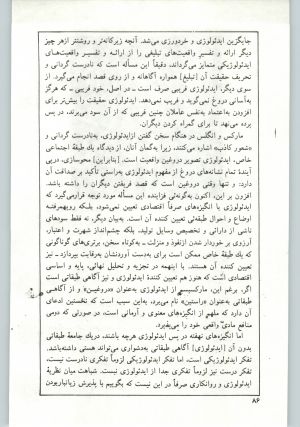 جایگزین ایدئولوژی و خردورزی می‌شد. آنچه زیرکانه‌تر و روشنتر ازهر چیز
دیگر ارائه و تفسیر واقعیت‌های تبلیغی را از ارائه و تفسیر واقعیت‌های
ایدئولوژیکی متمایز می‌گرداند، دقیقاً این مسأله است که نادرست گردانی و
تحریف حقیقت آن [تبلیغ] همواره آگاهانه و از روی قصد انجام می‌گیرد. از
سوی دیگر، ایدئولوژی فریبی صرف است ـ در اصل، خود فریبی ـ که هرگز
به‌آسانی دروغ نمی‌گوید و فریب نمی‌دهد. ایدئولوژی حقیقت را بیش‌تر برای
افزودن به‌اعتماد به‌نفس عاملان چنین فریبی که از آن سود می‌برند، در پس
پرده می‌نهد تا برای گمراه کردن دیگران.
مارکس و انگلس در هنگام سخن گفتن ازایدئولوژی، به‌نادرست گردانی و
«شعور کاذب» اشاره می‌کنند، زیرا به‌گمان آنان، ازدیدگاه یك طبقهٔ اجتماعی
خاص، ایدئولوژی تصویر دروغین واقعیت است. [بنابراین] محوسازی، درپی
آیندهٔ تمام نشانه‌های دروغ از مفهوم ایدئولوژی به‌راستی تأکید بر صداقت آن
دارد؛ و تنها وقتی دروغین است که قصد فریفتن دیگران را داشته باشد.
افزون بر این، اکنون به‌گونه‌ئی فزاینده این مسأله مورد توجه قرارمی‌گیرد که
ایدئولوژی با انگیزه‌های صرفاً اقتصادی تعیین نمی‌شود، بلکه رویهمرفته
اوضاع و احوال طبقه‌ئی تعیین کنندهٔ آن است. به‌بیان دیگر، نه فقط سودهای
ناشی از دارائی و تخصیص وسایل تولید، بلکه چشم‌انداز شهرت و اعتبار،
آرزوی بر خوردار شدن ازنفوذ و منزلت ـ به‌کوتاه سخن، برتری‌های گوناگونی
که یك طبقهٔ خاص ممکن است برای به‌دست آوردنشان به‌رقابت بپردازد ـ نیز
تعیین کنندهٔ آن هستند. با اینهمه در تجزیه و تحلیل نهائی، پایه و اساسی
اقتصادی است که هنوز هم تعیین کنندهٔ ایدئولوژی و نیز آگاهی طبقاتی است
اگر، برغم این، مارکسیسم از ایدئولوژی به‌عنوان «دروغین» و از آگاهی
طبقاتی به‌عنوان «راستین» نام می‌برد، به‌این سبب است که نخستین ادعای
آن دارد که ملهم از انگیزه‌های معنوی و آرمانی است، در صورتی که دومی
منافع مادیْ واقعی خود را می‌پذیرد.
اما انگیزه‌های نهفته در پس ایدئولوژی هرچه باشند، دریك جامعهٔ طبقاتی
بدون آن [ایدئولوژی] آگاهی طبقاتی به‌دشواری می‌تواند هستی داشته‌باشد.
تفکر ایدئولوژیکی است، اما تفکر ایدئولوژیکی لزوماً تفکری نادرست نیست،
تفکر درست نیز لزوماً تفکری جدا از ایدئولوژی نیست. شباهت میان نظریهٔ
ایدئولوژی و روانکاوی صرفاً در این نیست که بگوییم با پذیرش زیانبار بودن
۸۶